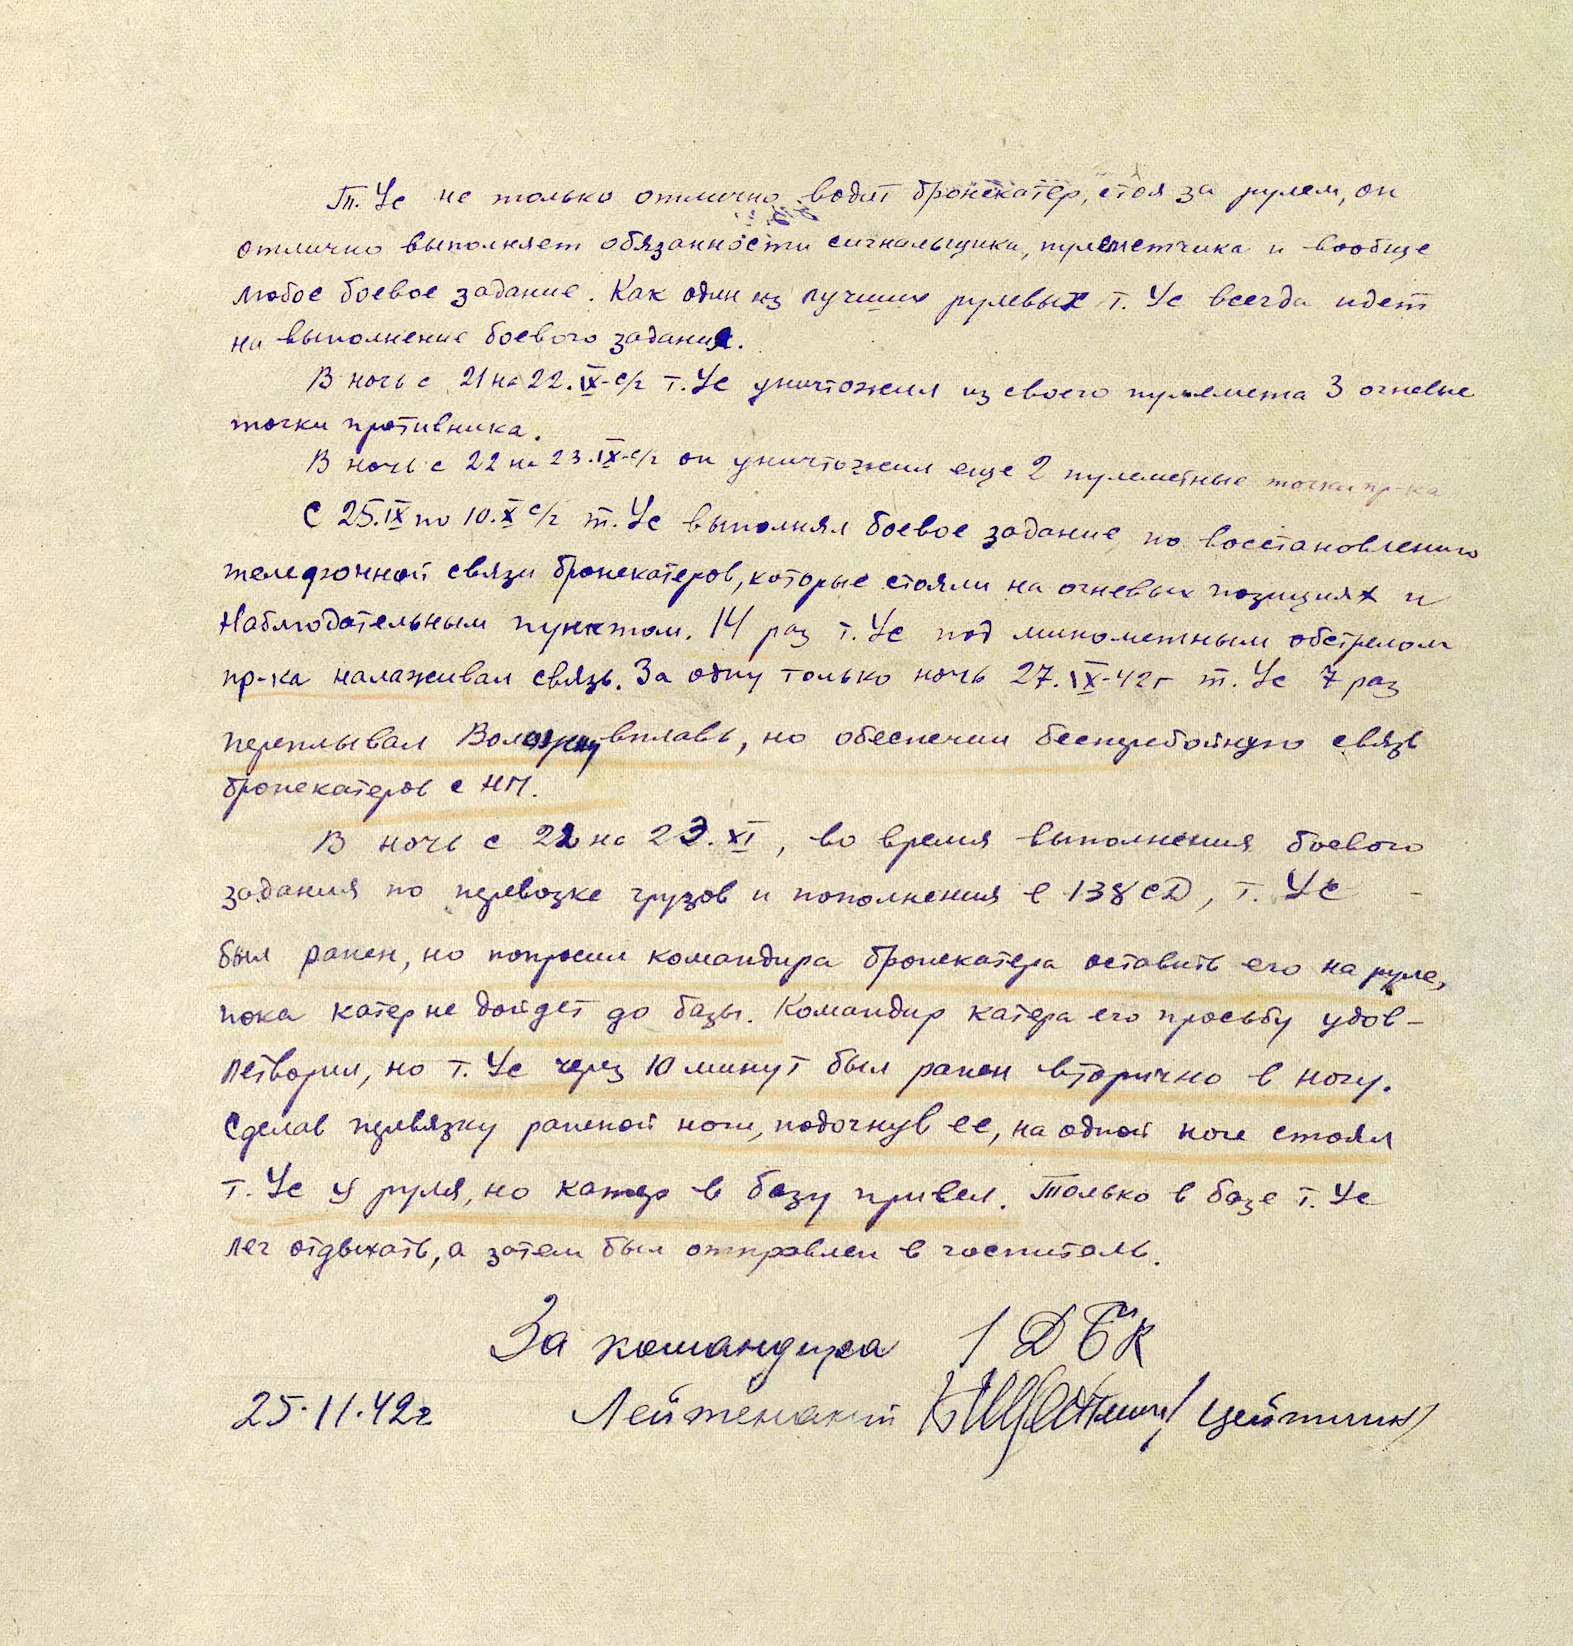 Т. Ус не только отлично водит бронекатер, стоя за рулем, он
отлично выполняет обязанности сигнальщика, пулеметчика и вообще
любое боевое задание. Как один из лучших рулевых т. Ус всегда идет
на выполнение боевого задания.
В ночь с 21 на 22.IX-с/г т. Ус уничтожил из своего пулемета 3 огневые
точки противника.
В ночь с 22 на 23.IX-с/г он уничтожил еще 2 пулеметные точки пр-ка
С 25.IX по 10.X с/г т. Ус выполнял боевое задание по восстановлению
телефонной связи бронекатеров, которые стояли на огневых позициях и
Наблюдательным пунктом. 14 раз т. Ус под минометным обстрелом
пр-ка налаживал связь. За одну только ночь 27.IX-42г т. Ус 7 раз
переплывал вплавь, но обеспечил бесперебойную связь
бронекатеров с НП.
В ночь с 22 на 23.XI, во время выполнения боевого
задания по перевозке грузов и пополнения в 138 СД, т. Ус
был ранен, но попросил командира бронекатера оставить его на руле,
пока катер не дойдет до базы. Командир катера его просьбу удов-
летворил, но т. Ус через 10 минут был ранен вторично в ногу.
Сделав перевязку раненой ноги, подогнув ее, на одной ноге стоял
т. Ус у руля, но катер в базу привел. Только в базе т. Ус
лег отдыхать, а затем был отправлен в госпиталь.
За командира 1 ДБК
25.11.42г Лейтенант /Цейтлин/